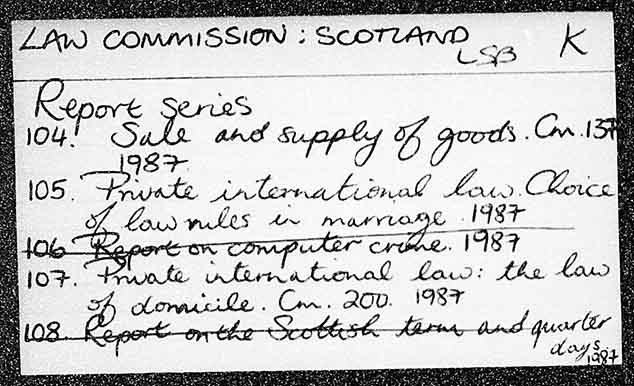 LAW COMMISSION : SCOTLAND
LSB K
Report series
104. Sale and supply of goods. Cm. 137
1987
105. Private international law. Choice
of law rules in marriage. 1987
106 Report on computer crime. 1987
107. Private international law: the law
of domicile. Cm. 200. 1987
108. Report on the Scottish term and quarter
days.
1987